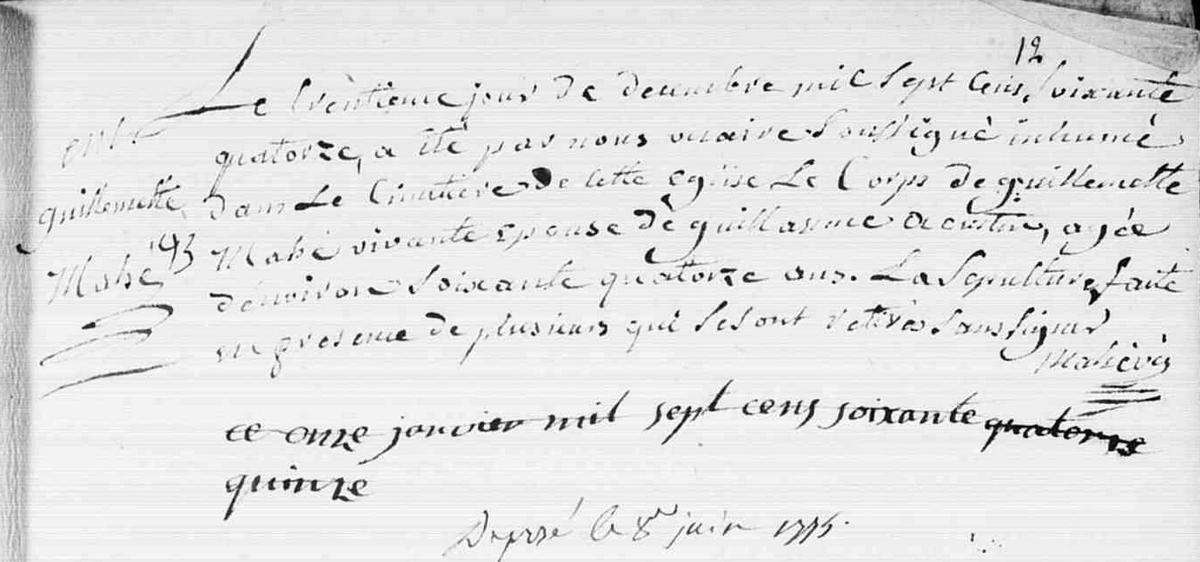 12
Le trentieme jour de decembre mil sept cens soixante
quatorze, a été par nous vicaire soussigné inhumé
dans Le Cimetiere de cette eglise Le Corps de guillemette
Mahé vivante epouse de guillaume agée
d'environ soixante quatorze ans. La Sepulture faite
en presence de plusieurs qui se sont retirés sans signer
Mahé vic
ent.
guillemette
Mahé 93
ce onze janvier mil sept cens soixante quatorze
quinze
Deposé le 8 juin 1775.